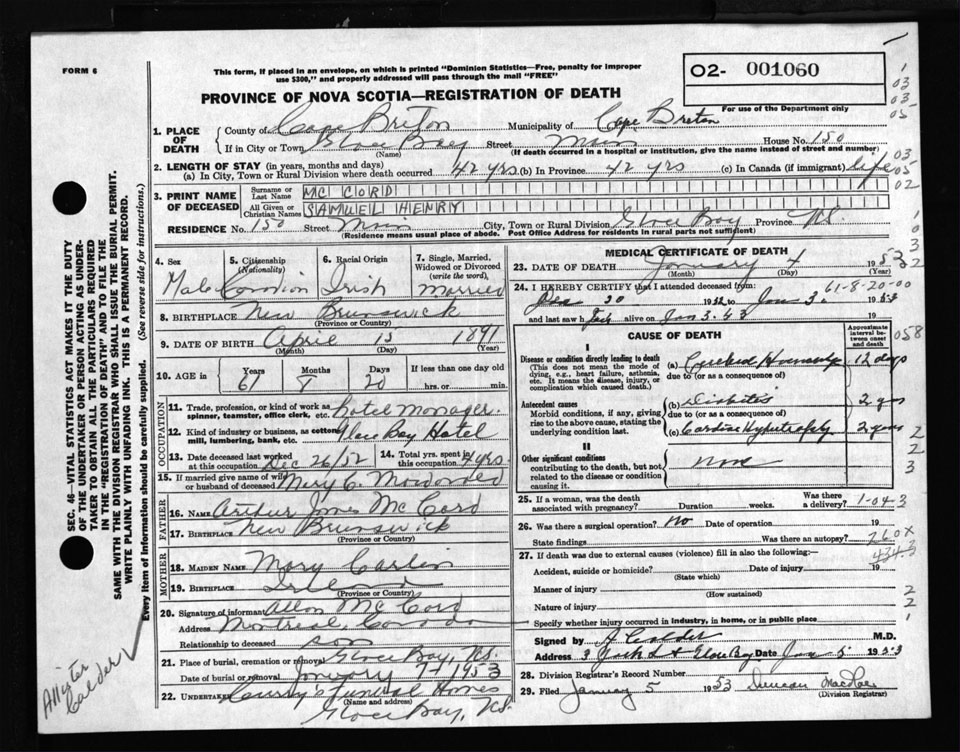 FORM 6
This form, if placed in an envelope, on which is printed "Dominion Statistics—Free, penalty for improper
use $300," and properly addressed will pass through the mail "FREE"
O2- 001060
For use of the Department only
PROVINCE OF NOVA SCOTIA—REGISTRATION OF DEATH
1. PLACE OF DEATH
County of Cape Breton Municipality of Cape Breton
If in City or Town Glace Bay (Name) Street Main House No. 150
(If death occurred in a hospital or institution, give the name instead of street and number)
2. LENGTH OF STAY (in years, months and days)
(a) In City, Town or Rural Division where death occurred 42 yrs (b) In Province 42 yrs (c) In Canada (if immigrant) life
3. PRINT NAME OF DECEASED
Surname or Last Name MC CORD
All Given or Christian Names SAMUEL HENRY
RESIDENCE No. 150 Street Main City, Town or Rural Division Glace Bay Province N.S.
(Residence means usual place of abode. Post Office Address for residents in rural parts not sufficient)
4. Sex Male
5. Citizenship (Nationality) Canadian
6. Racial Origin Irish
7. Single, Married, Widowed or Divorced (write the word) married
8. BIRTHPLACE New Brunswick
(Province or Country)
9. DATE OF BIRTH April 15 1891
(Month) (Day) (Year)
10. AGE in Years 61 Months 8 Days 20 If less than one day old
hrs. or min.
OCCUPATION
11. Trade, profession, or kind of work as spinner, teamster, office clerk, etc. hotel manager.
12. Kind of industry or business, as cotton mill, lumbering, bank, etc. Glace Bay Hotel
13. Date deceased last worked at this occupation Dec 26/52
14. Total yrs. spent in this occupation 4 yrs.
15. If married give name of wife or husband of deceased Mary C.
FATHER
16. Name Arthur James McCord
17. Birthplace New Brunswick
(Province or Country)
MOTHER
18. Maiden Name Mary Carlin
19. Birthplace Ireland
(Province or Country)
20. Signature of informant Allan McCord
Address Montreal, Canada
Relationship to deceased son
21. Place of burial, cremation or removal Glace Bay, N.S.
Date of burial or removal January 7 1953
22. Undertaker Curry's Funeral Homes
(Name and address)
Glace Bay, N.S.
MEDICAL CERTIFICATE OF DEATH
23. DATE OF DEATH January 4 1953
(Month) (Day) (Year)
61-8-20-00
24. I HEREBY CERTIFY that I attended deceased from:
Dec 30 1952 to Jan 3. 1953
and last saw h alive on Jan 3. 53
CAUSE OF DEATH
Approximate interval between onset and death
I
Disease or condition directly leading to death
(This does not mean the mode of dying, e.g., heart failure, asthenia, etc. It means the disease, injury, or complication which caused death.)
(a) Cerebral Hemorrhage 12 days
due to (or as a consequence of)
Antecedent causes
Morbid conditions, if any, giving rise to the above cause, stating the underlying condition last.
(b) Diabetes 2 yrs
due to (or as a consequence of)
(c) Cardiac Hypertrophy 2 years
II
Other significant conditions
contributing to the death, but not related to the disease or condition causing it.
none
25. If a woman, was the death associated with pregnancy? Duration weeks. Was there a delivery? 1-04-3
26. Was there a surgical operation? No Date of operation 19
State findings Was there an autopsy? 260X
4343
27. If death was due to external causes (violence) fill in also the following:—
Accident, suicide or homicide? Date of injury 19
(State which)
Manner of injury
(How sustained)
Nature of injury
Specify whether injury occurred in industry, in home, or in public place
Signed by H Calder M.D.
Address Glace Bay Date Jan 5 1953
28. Division Registrar's Record Number
29. Filed January 5 1953 Duncan MacRae
(Division Registrar)
SEC. 46—VITAL STATISTICS ACT MAKES IT THE DUTY
OF THE UNDERTAKER OR PERSON ACTING AS UNDERTAKER TO OBTAIN ALL THE PARTICULARS REQUIRED
IN THE "REGISTRATION OF DEATH" AND TO FILE THE
SAME WITH THE DIVISION REGISTRAR WHO SHALL ISSUE THE BURIAL PERMIT.
WRITE PLAINLY WITH UNFADING INK. THIS IS A PERMANENT RECORD.
Every item of Information should be carefully supplied. (See reverse side for instructions.)
Calder